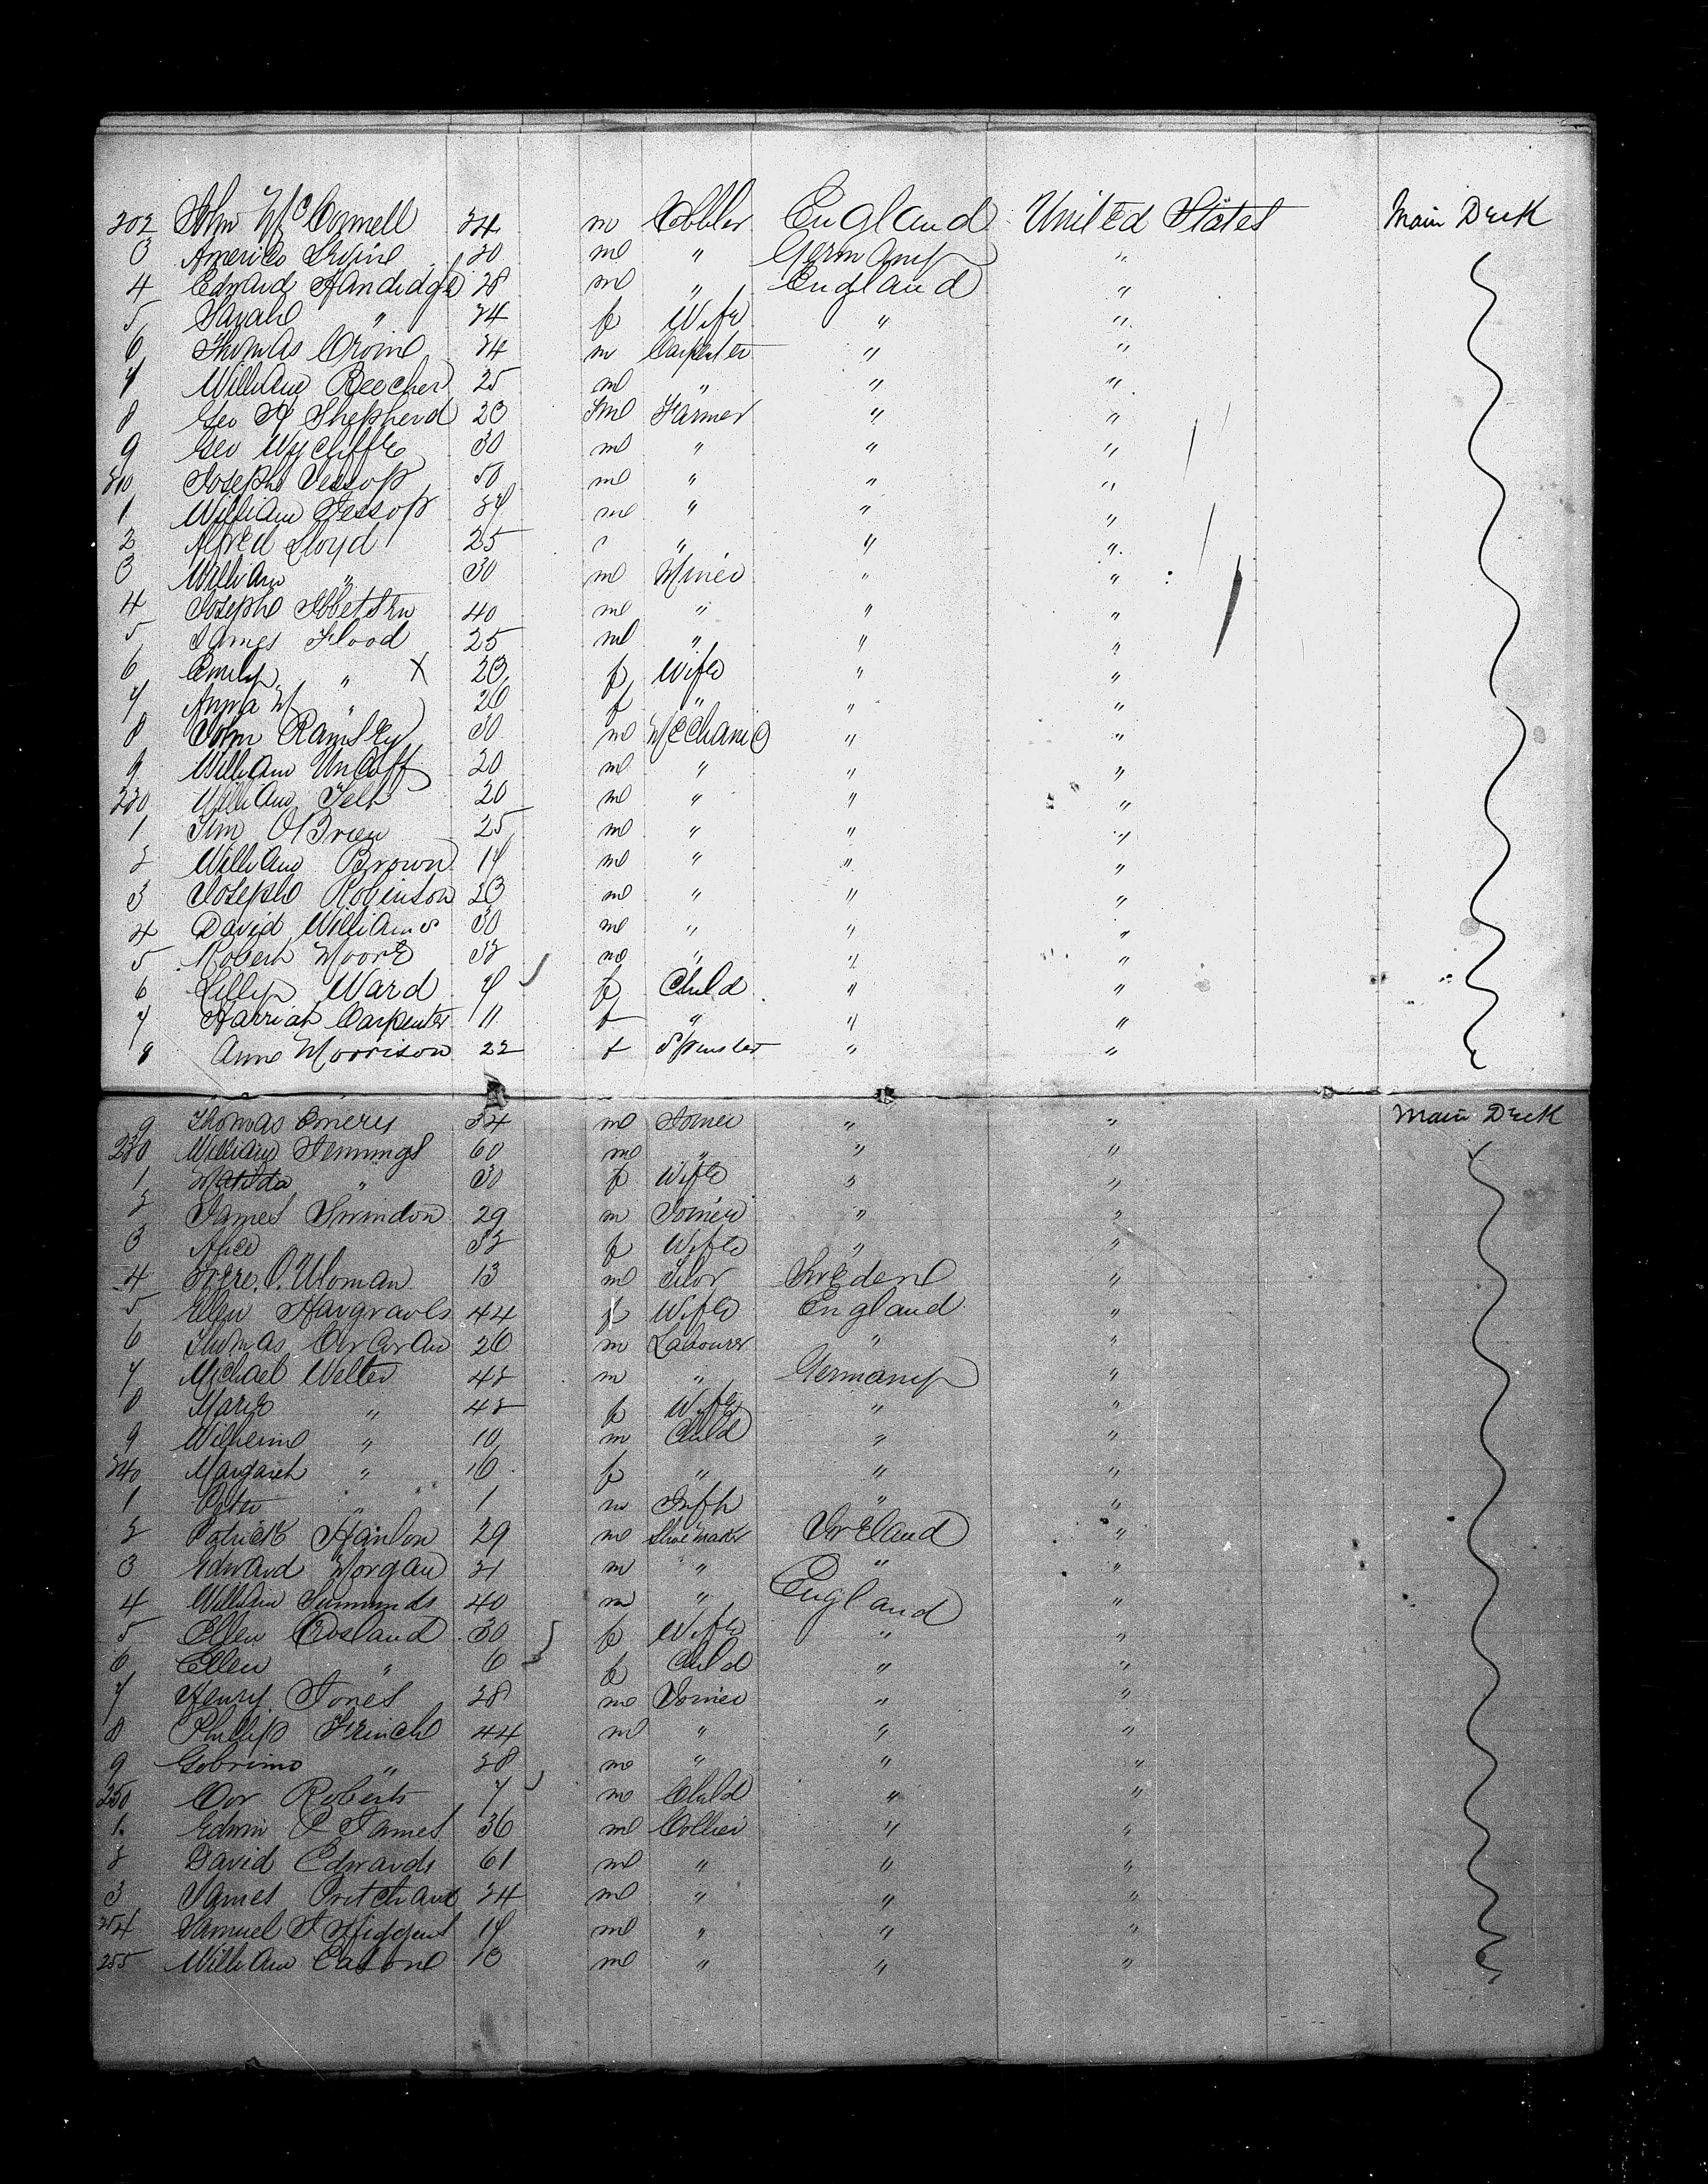 202 John McConnell 24 m Cobler England United States Main Deck
3 Americo Levine 20 m " Germany "
4 Edward Handidge 28 m " England "
5 Sarah " 24 f Wife " "
6 Thomas Crome 24 m Carpenter " "
7 William Beecher 25 m " " "
8 Geo H Shepherd 23 m Farmer " "
9 Geo Wycliffe 30 m " " "
210 Joseph Jessop 50 m " " "
1 William Jessop 27 m " " "
2 Alfred Lloyd 25 " " "
3 William " 30 m Miner " "
4 Joseph Ibbetson 40 m " " "
5 James Flood 25 m " " "
6 Emily " X 23 f Wife " "
7 Anna M " 26 f " " "
8 John Ramsey 30 m Mechanic " "
9 William 20 m " " "
220 William 20 m " " "
1 Jim O'Brien 25 m " " "
2 William Brown 17 m " " "
3 Joseph Robinson 23 m " " "
4 David Williams 30 m " " "
5 Robert Moore 32 m " " "
6 Lilly Ward 7 f Child " "
7 Harriah Carpenter 11 f " " "
8 Anne Morrison 22 f Spinster " "
9 Thomas Emery 34 m Joiner " " Main Deck
230 William Jennings 60 m " " "
1 Matilda " 30 f Wife " "
2 James Swindon 29 m Joiner " "
3 Alice 32 f Wife " "
4 O. Uloman 13 m Sweden "
5 Ellen Hargraves 44 f Wife England "
6 Thomas Corcoran 26 m Labourer " "
7 Michael Welter 42 m " Germany "
8 Marie " 42 f Wife " "
9 Wilhelm " 10 m Child " "
240 Margareth " 16 f " " "
1 Peter " 1 m Inft " "
2 Patrick Hanlon 29 m Shoemaker Ireland "
3 Edward Morgan 21 m " " "
4 William Simmonds 40 m " England "
5 Ellen Crosland 30 f Wife " "
6 Ellen " 6 f Child " "
7 Henry Jones 28 m Joiner " "
8 Phillip French 44 m " " "
9 " 28 m " " "
250 Roberts 7 m Child " "
1 Edwin C James 36 m Collier " "
2 David Edwards 61 m " " "
3 James Pritchard 24 m " " "
254 Samuel J Higgens 17 m " " "
255 William 18 m " " "